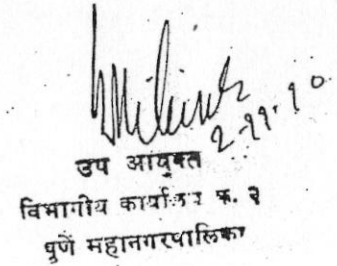 २-११-१०
उप आयुक्त
विभागीय कार्यालय क्र. ३
पुणे महानगरपालिका